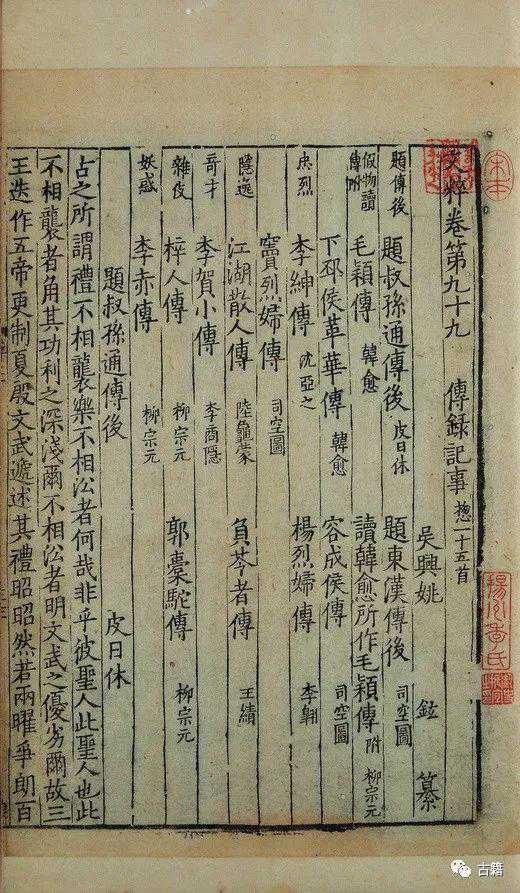 文粹卷第九十九 傳錄記事 揔一十五首
吳興姚 鉉 纂
題傳後 題叔孫通傳後 皮日休 題東漢傳後 司空圖
假物讀傳附 毛穎傳 韓愈 讀韓愈所作毛穎傳附 柳宗元
下邳侯革華傳 韓愈 容成侯傳 司空圖
忠烈 李紳傳 沈亞之 楊烈婦傳 李翱
竇烈婦傳 司空圖
隱逸 江湖散人傳 陸龜蒙 負苓者傳 王績
奇才 李賀小傳 李商隱
雜伎 梓人傳 柳宗元 郭橐駝傳 柳宗元
妖惑 李赤傳 柳宗元
題叔孫通傳後 皮日休
古之所謂禮不相襲樂不相㳂者何哉非乎彼聖人此聖人也此
不相襲者角其功利之深淺爾不相㳂者明文武之優劣爾故三
王迭作五帝更制夏殷文武遞述其禮昭昭然若兩曜爭朗百
宋本
古籍